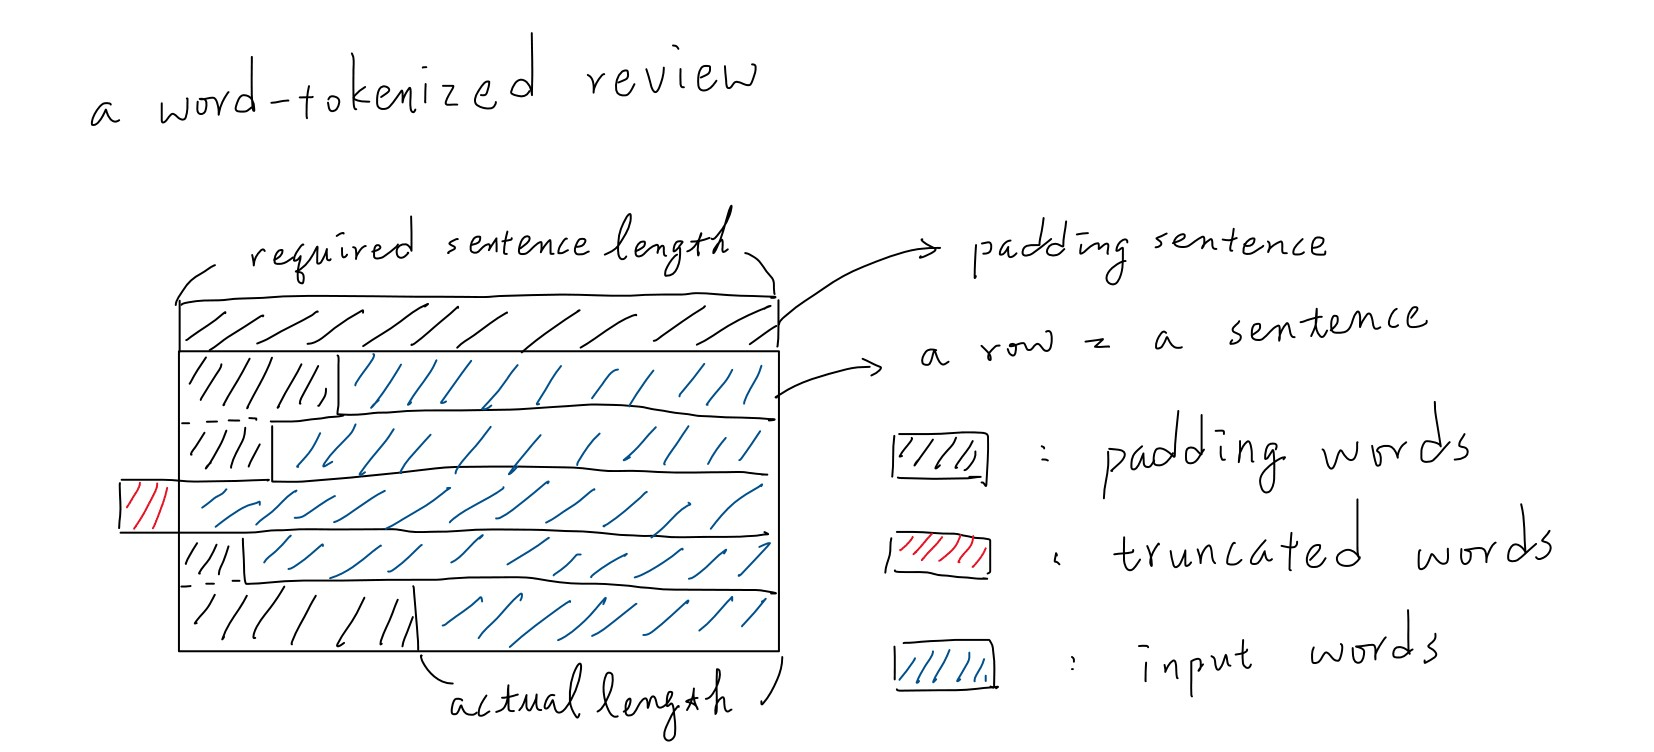 a word-tokenized review
required sentence length
padding sentence
a row = a sentence
: padding words
: truncated words
: input words
actual length